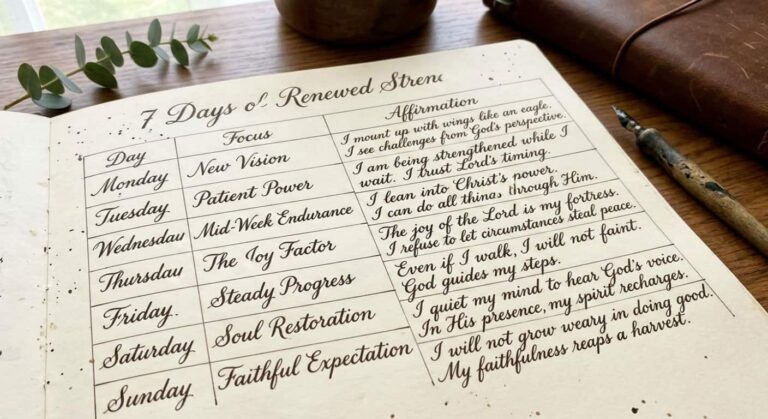 7 Days of Renewed Stren
Day Focus Affirmation
Monday New Vision I mount up with wings like an eagle.
I see challenges from God's perspective.
Tuesday Patient Power I am being strengthened while I
wait. I trust Lord's timing.
Wednesday Mid-Week Endurance I lean into Christ's power.
I can do all things through Him.
Thursday The Joy Factor The joy of the Lord is my fortress.
I refuse to let circumstances steal peace.
Friday. Steady Progress Even if I walk, I will not faint.
God guides my steps.
Saturday Soul Restoration I quiet my mind to hear God's voice.
In His presence, my spirit recharges.
Sunday Faithful Expectation I will not grow weary in doing good.
My faithfulness reaps a harvest.